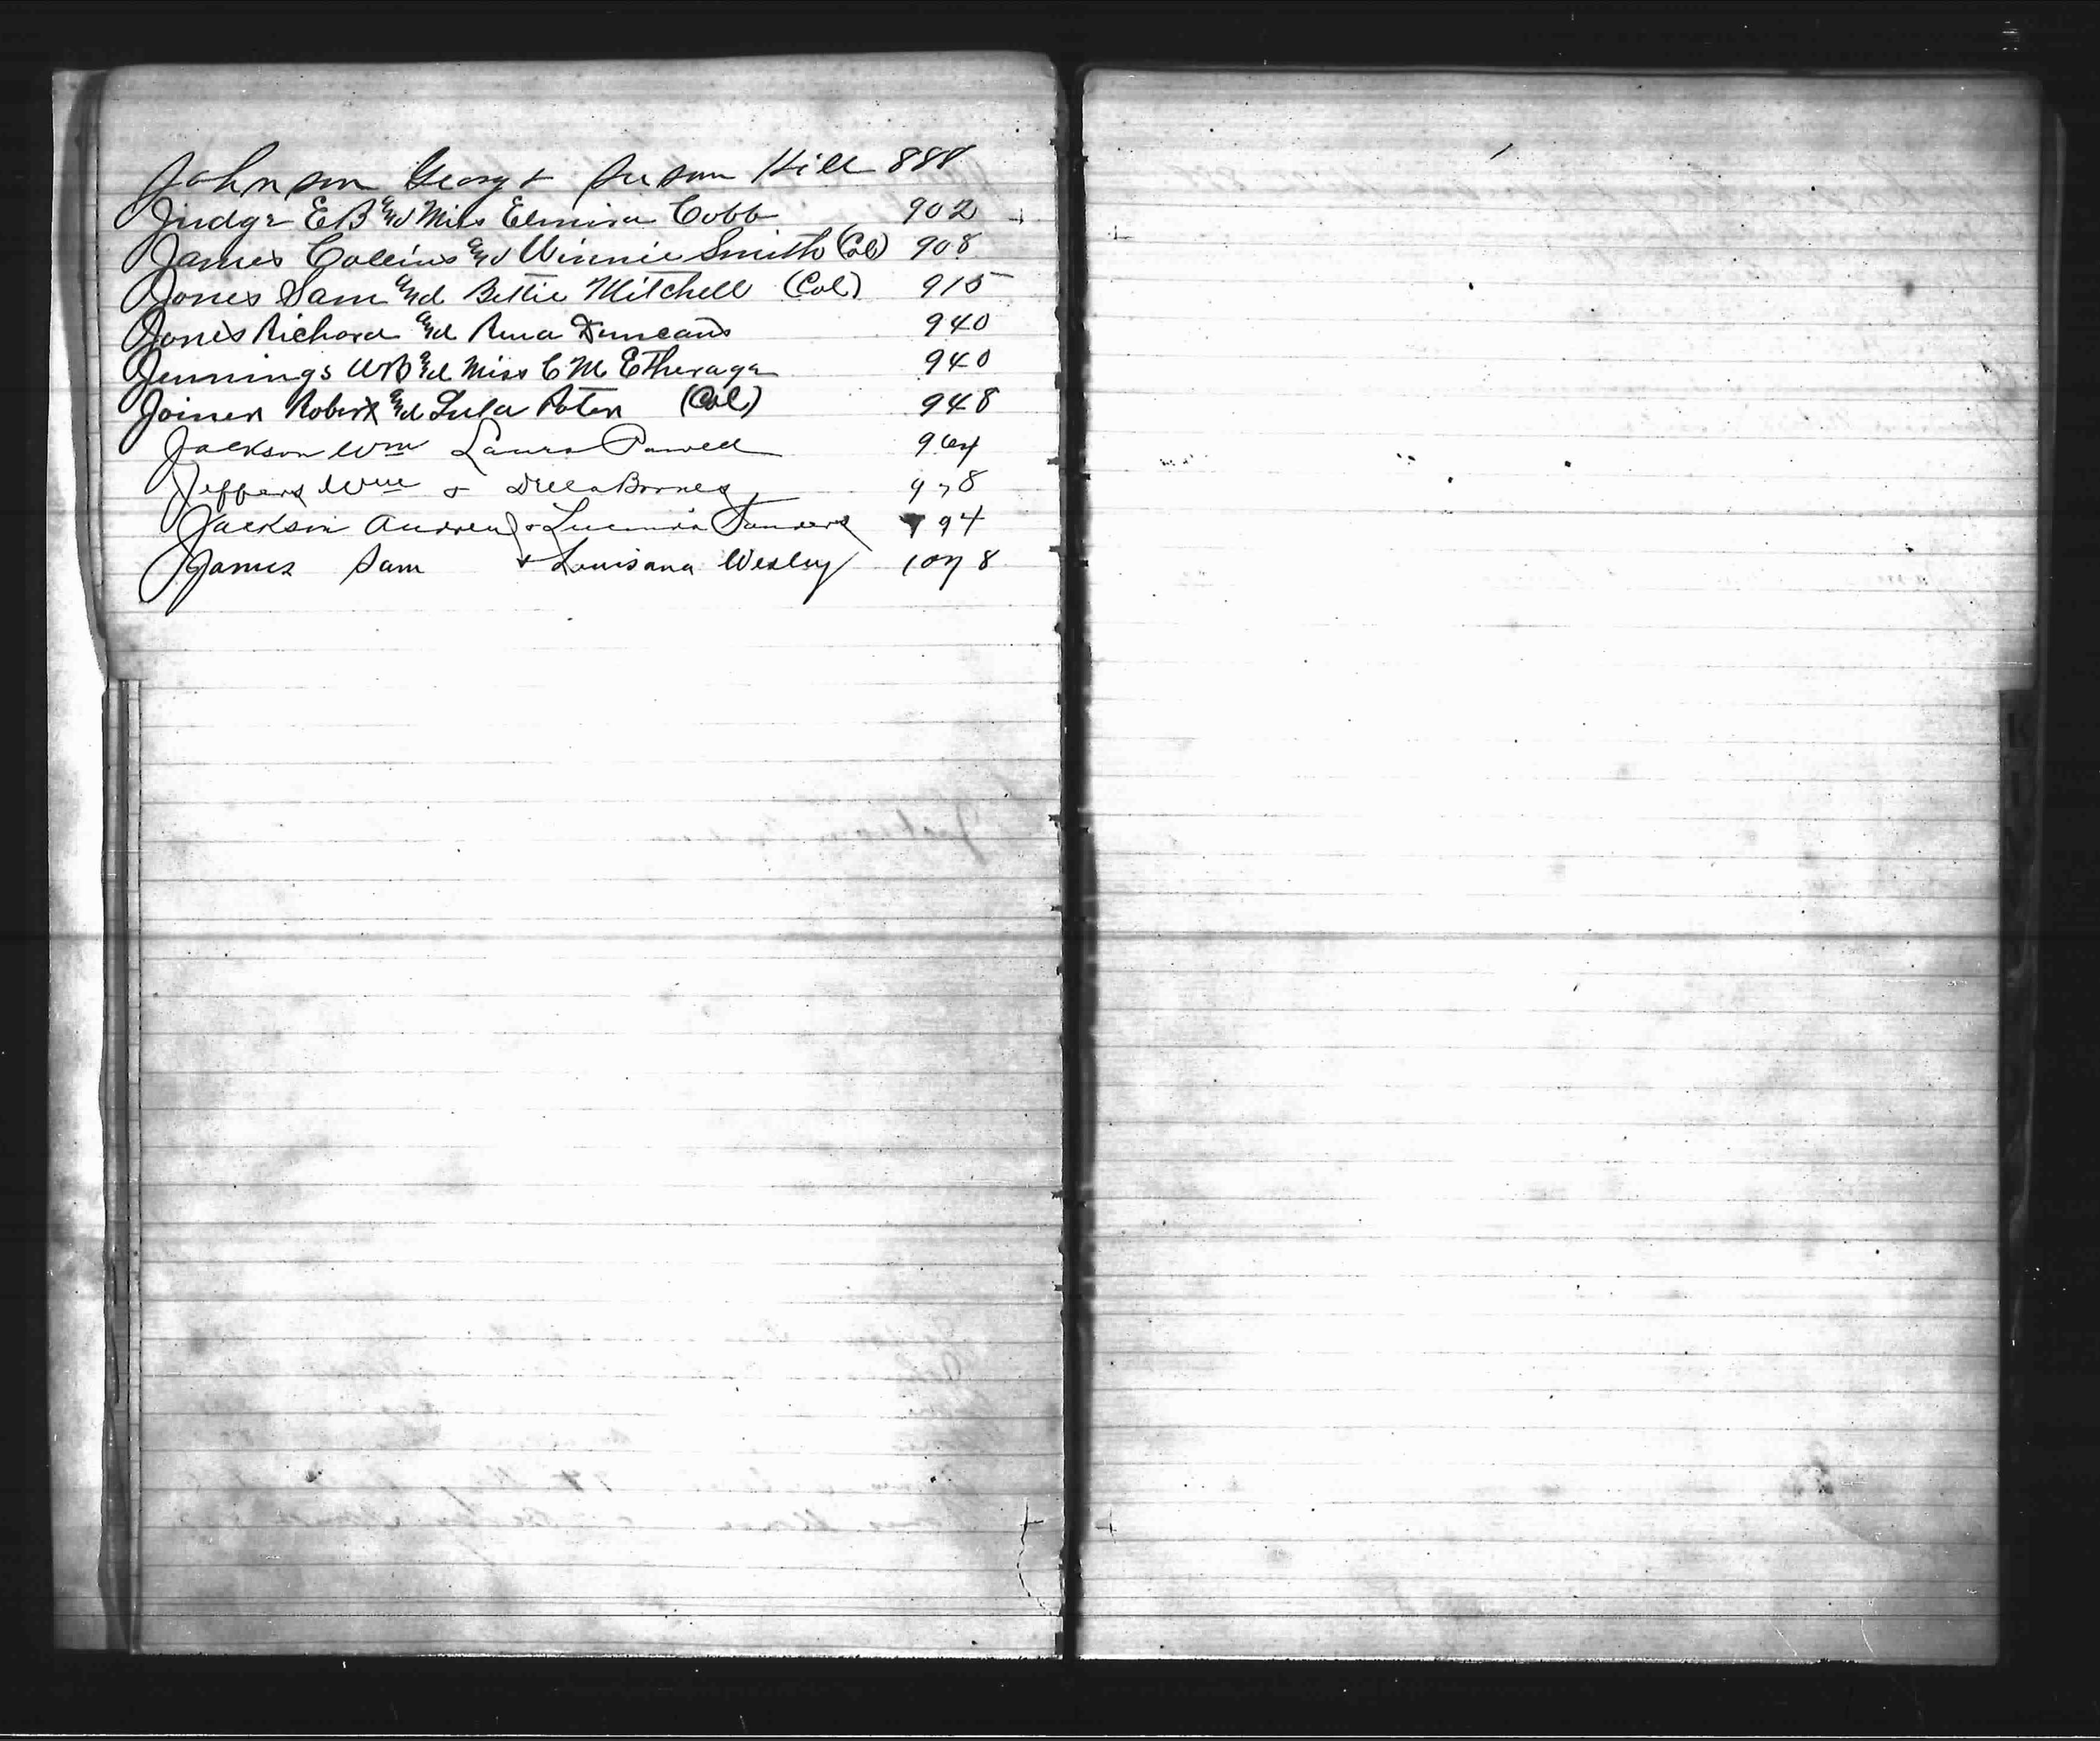 Johnson George & Susan Hill 888
Judge E B and Miss Elmira Cobb 902
James Collins and Winnie Smith (Col) 908
Jones Sam and Bettie Mitchell (Col) 915
Jones Richard and Rena Duncans 940
Jennings W B and Miss C M Etherage 940
Joiner Robert and Lula Poten (Col) 948
Jackson Wm Laura Powell 964
Jeffers Wm & Della Barnes 978
Jackson Andrew & Lucinda Sanders 994
James Sam & Louisana Wesley 1078
K